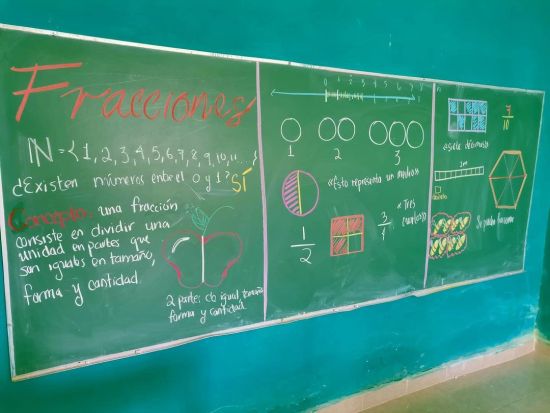 Fracciones
ℕ = {1, 2, 3, 4, 5, 6, 7, 8, 9, 10, 11, ...}
¿Existen números entre el 0 y 1? SÍ
Concepto: una fracción
consiste en dividir una
unidad en partes que
son iguales en tamaño,
forma y cantidad.
2 partes de igual tamaño
forma y cantidad
0 1 2 3 4 5 6 7
1 2 3
«Esto representa un medio»
1/2
3/4
«Tres
cuartos»
7/10
«siete décimos»